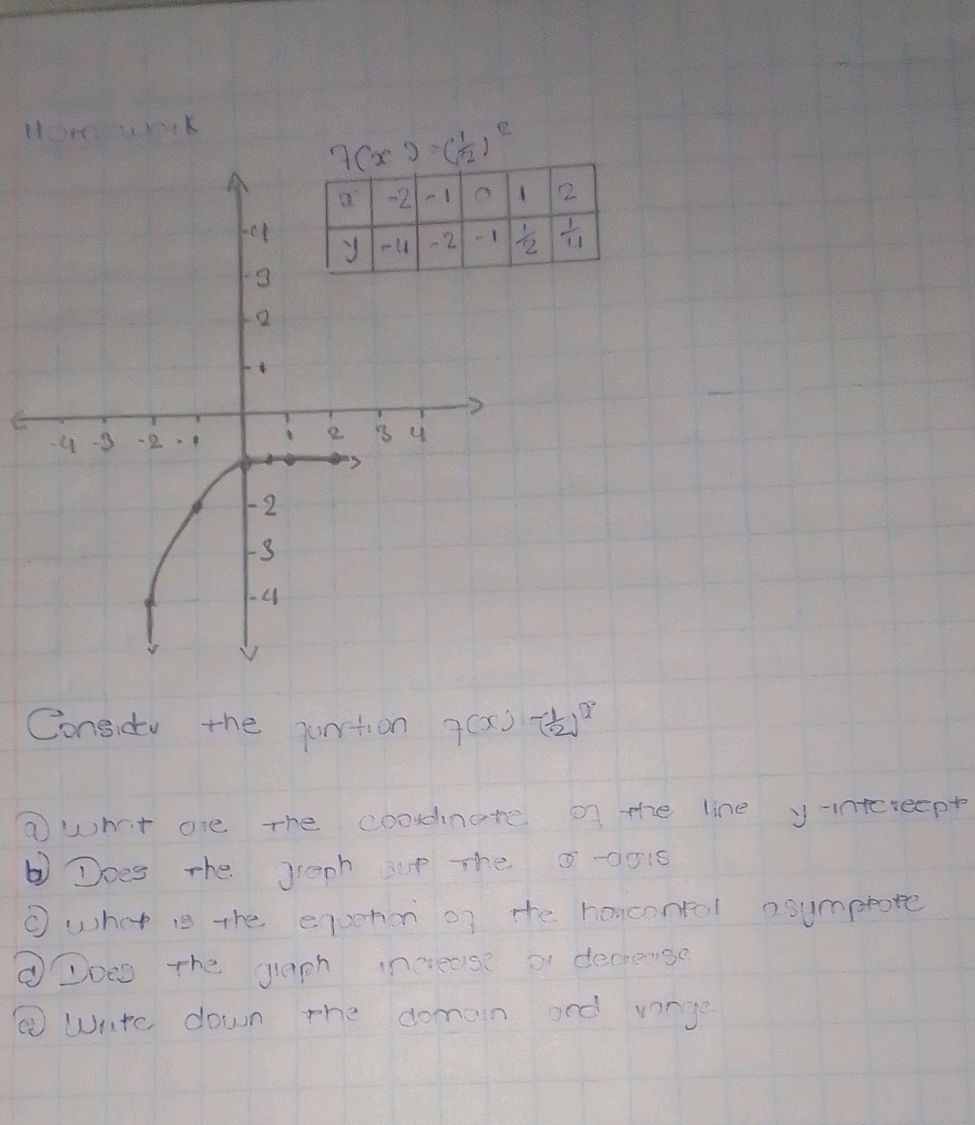 Homework
7(x) -(1/2)^x
4
3
2
1
x -2 -1 0 1 2
y -4 -2 -1 1/2 1/4
-4 -3 -2 -1 1 2 3 4
-2
-3
-4
Consider the function 7(x) -(1/2)^x
a) what are the coordinate of the line y-intercept
b) Does the graph cut the x-axis
c) what is the equation of the horicontal asymptote
d) Does the graph increase or decrease
e) Write down the domain and range